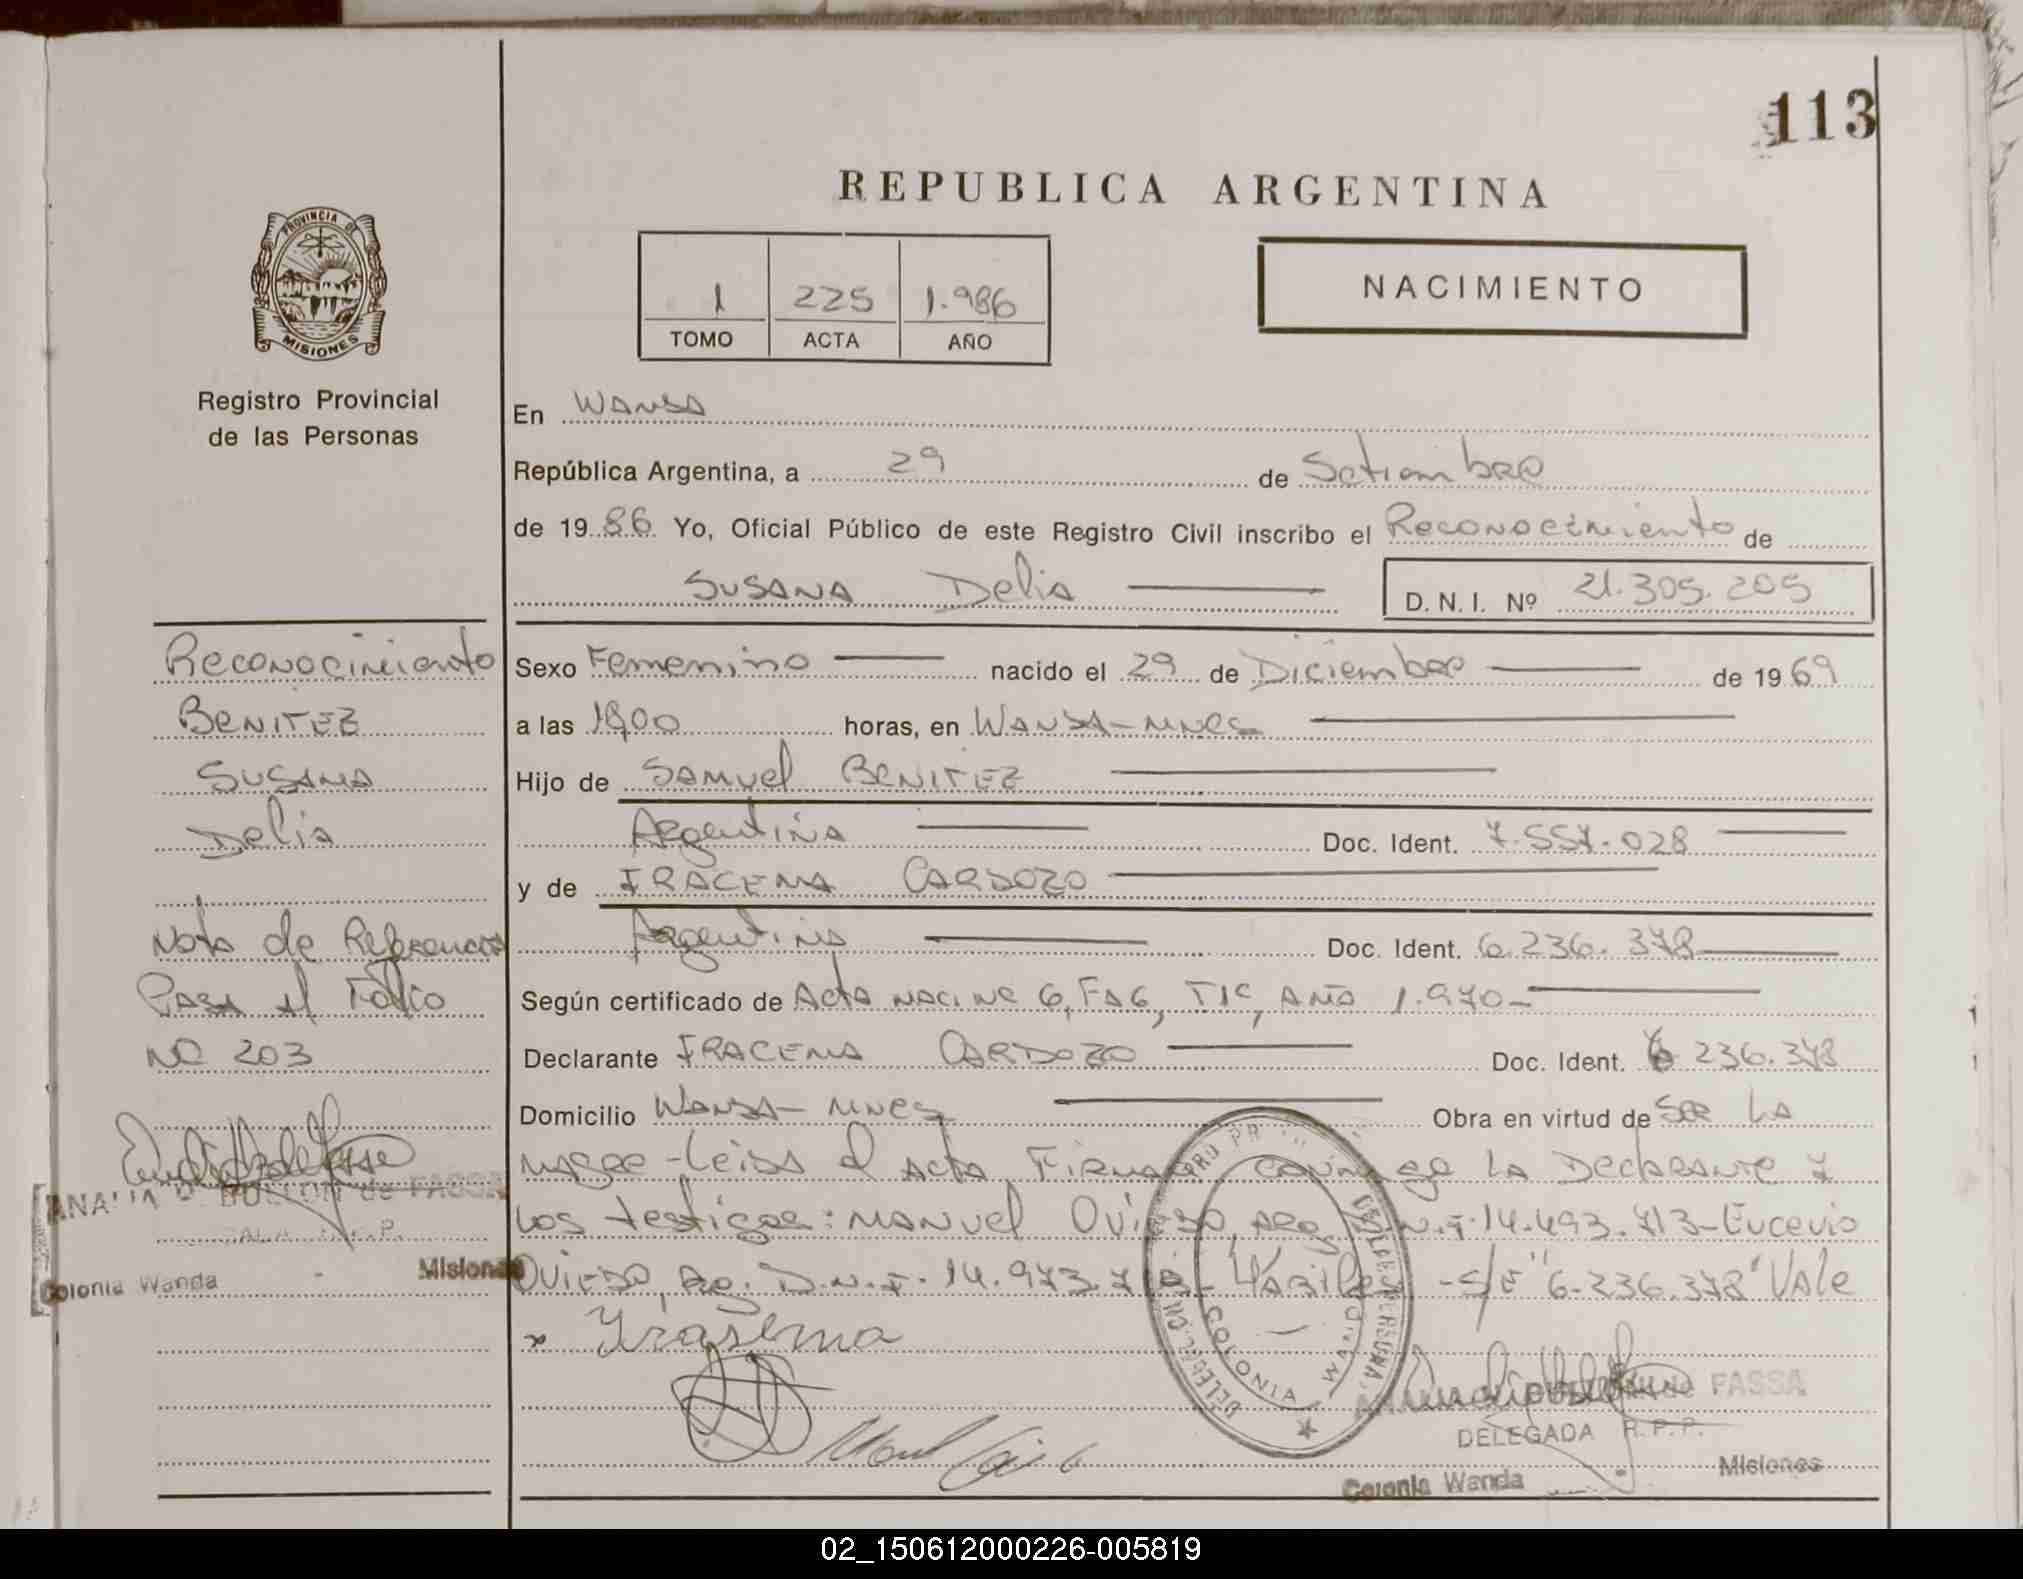 113
REPUBLICA ARGENTINA
PROVINCIA DE
MISIONES
Registro Provincial
de las Personas
1 225 1.986
TOMO ACTA AÑO
NACIMIENTO
En Wanda
República Argentina, a 29 de Setiembre
de 1986 Yo, Oficial Público de este Registro Civil inscribo el Reconocimiento de
Susana Delia D.N.I. Nº 21.305.205
Reconocimiento
Benitez
Susana
Delia
Nota de Referencia
Pasa al Folio
Nº 203
ANALIA de FASSA
Colonia Wanda Misiones
Sexo Femenino nacido el 29 de Diciembre de 1969
a las horas, en Wanda-Mnes
Hijo de Samuel Benitez
Argentina Doc. Ident. 7.557.028
y de Iracema Cardozo
Argentina Doc. Ident. 6.236.378
Según certificado de Acta Nac. Nº 6, Fº 6, Tº 1º, Año 1.970-
Declarante Iracema Cardozo Doc. Ident. 6.236.378
Domicilio Wanda-Mnes Obra en virtud de Ser La
Madre-Leida el Acta Firman conmigo La Declarante y
Los testigos: Manuel Oviedo, Arg. D.N.I. 14.493.713-Eucevio
Oviedo, Arg. D.N.I. 14.973. - S/E "6.236.378" Vale
Irasema
COLONIA WANDA
de FASSA
DELEGADA R.P.P.
Colonia Wanda Misiones
02_150612000226-005819